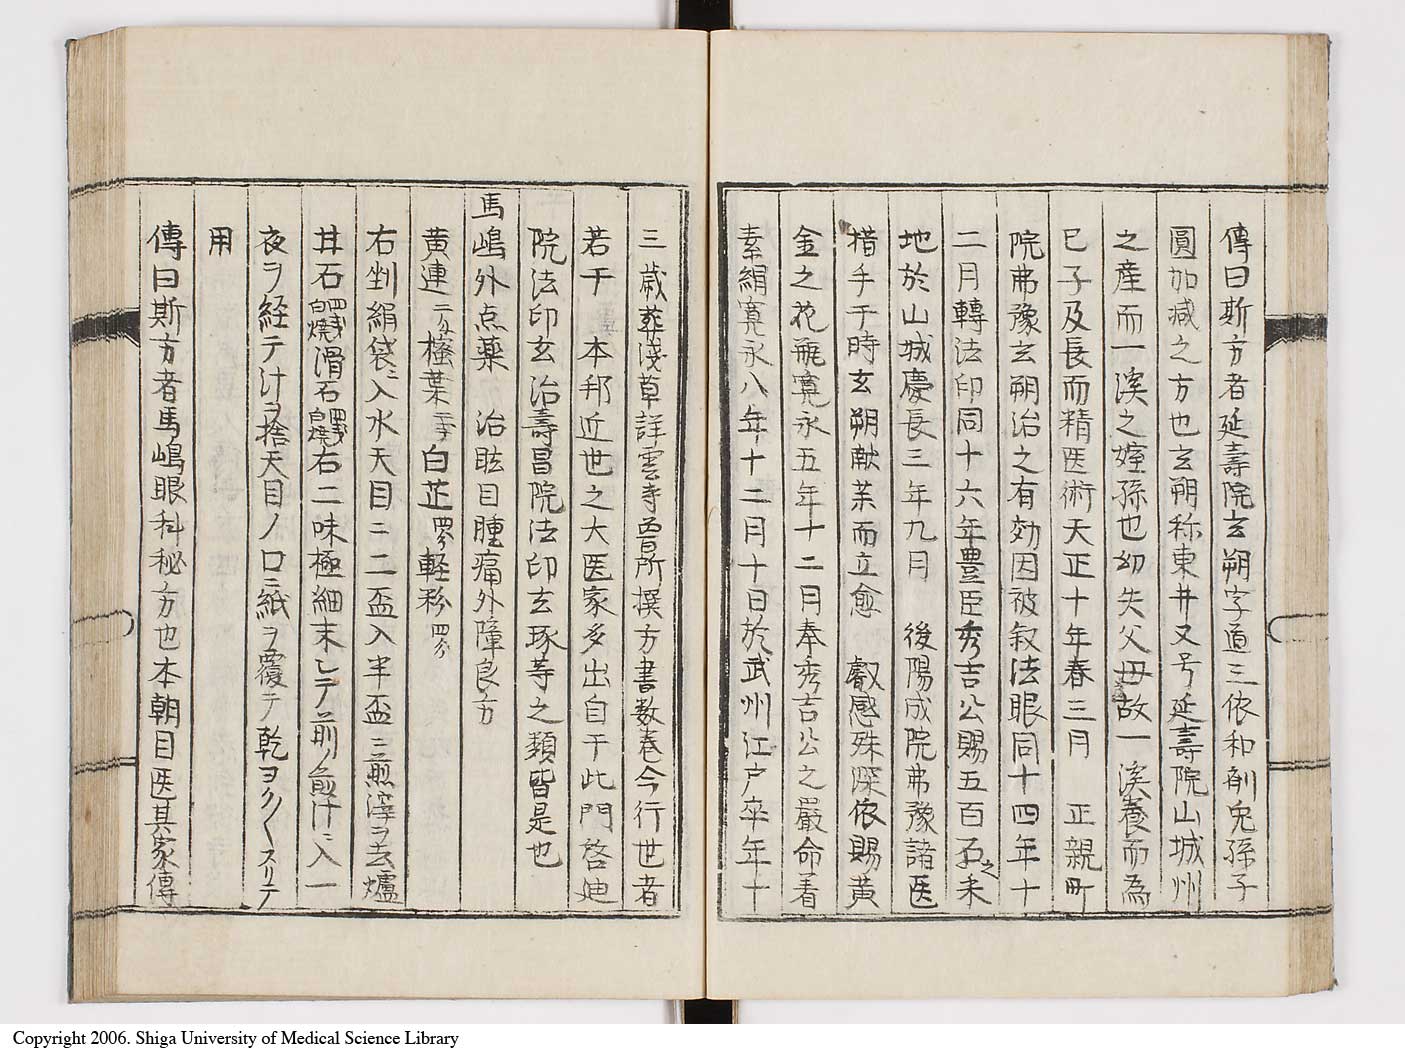 傳曰斯方者延壽院玄朔字道三依和剤兎孫子
圓加减之方也玄朔称東井又号延壽院山城州
之産而一溪之姪孫也幼失父母故一溪養而為
已子及長而精医術天正十年春三月 正親町
院弗豫玄朔治之有効因被叙法眼同十四年十
二月轉法印同十六年豊臣秀吉公賜五百石之釆
地於山城慶長三年九月 後陽成院弗豫諸医
措手于時玄朔献藥而立愈 叡感殊深依賜黄
金之花瓶寛永五年十二月奉秀吉公之嚴命着
素絹寛永八年十二月十日於武州江戸卒年十
三歳葬浅草詳雲寺曽所撰方書数巻今行世者
若干 本邦近世之大医家多出自于此門啓迪
院法印玄治壽昌院法印玄琢等之類皆是也
馬嶋外点薬 治眩目腫痛外障良方
黄連 二匁 櫁葉 二十 白芷 四匁 軽粉 四匁
右剉絹袋ニ入水天目ニ二盃入半盃ニ煎滓ヲ去爐
井石 白焼 滑石 白焼 右二味極細末シテ前煎汁ニ入一
夜ヲ経テ汁ヲ捨天目ノ口ニ紙ヲ覆テ乾ヨク〱スリテ
用
傳曰斯方者馬嶋眼科秘方也本朝目医其家傳
Copyright 2006. Shiga University of Medical Science Library